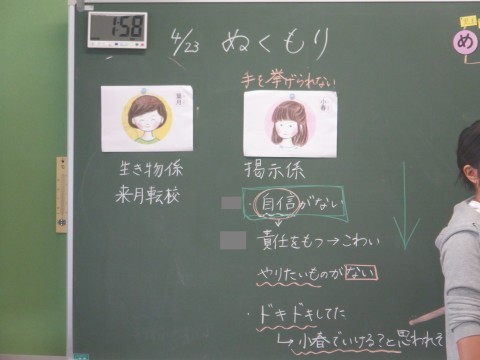 1:58
4/23 ぬくもり
め
手を挙げられない
葉月
小春
生き物係
来月転校
掲示係
・自信がない
責任をもつ→こわい
やりたいものがない
・ドキドキしてた
↳小春でいける?と思われそ